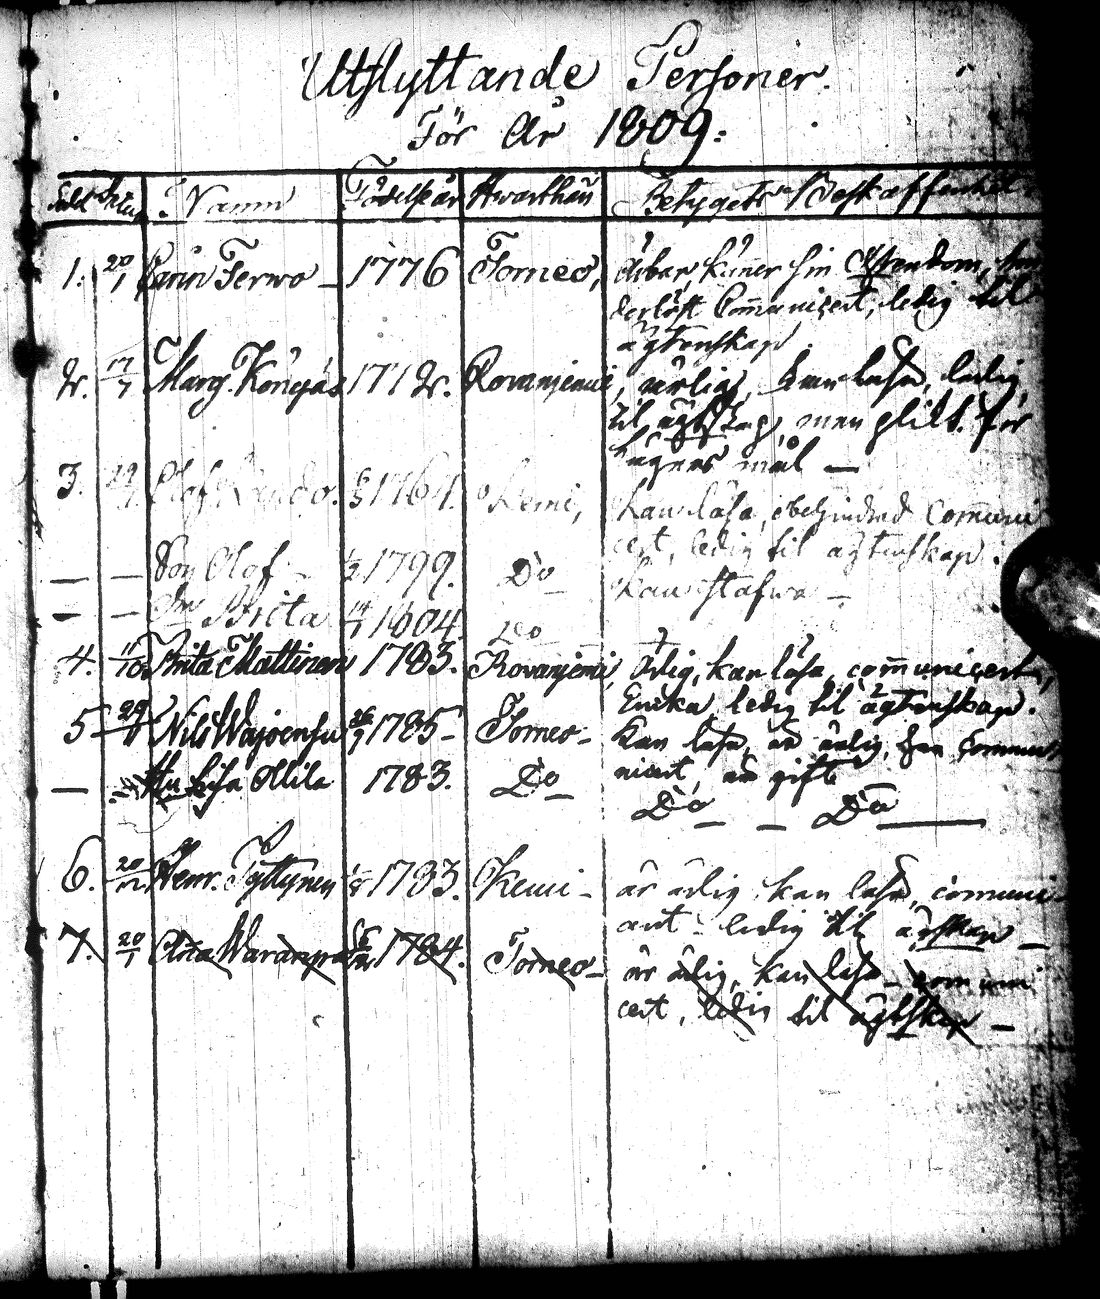 Utflyttande Personer.
För År 1809:
Namn Födelseår Hwarthän Betygets Beskaffenhet
1. 20/1 Carin Terwo – 1776 Torneo, ärbar, kuner sin Xstendom,
derlöst Com̄unicert, ledig til
ägtenskap.
2. 17/7 Marg. Könejäs 1772. Rovanjemi, ärlig, kan läsa, ledig
til ägtskap, man för
mål –
3. 29 Olof 1764. Kemi, kan läsa, obehindrad Com̄uni
cert, ledig til ägtenskap.
– – Son Olof – 1799. Do kan stafwa –
– – Dr Brita 14 1804. Do
4. 11/10 Brita Mattinen 1783. Rovanjemi, ärlig, kan läsa, com̄unicert,
Enka, ledig til ägtenskap.
5 29 Nils 26/9 1785 – Torneo – kan läsa, är ärlig, har commu-
nicert, är gift
– Hu Lisa Ollila 1783. Do – Do – – Do
6. 20/12 Henr. Tyttynen 1783. Kemi – är ärlig, kan läsa, comuni-
cert – ledig til äskap –
7. 20/1 1784. Torneo – är ärlig, kan läsa – comuni
cert, ledig til ägtskap –